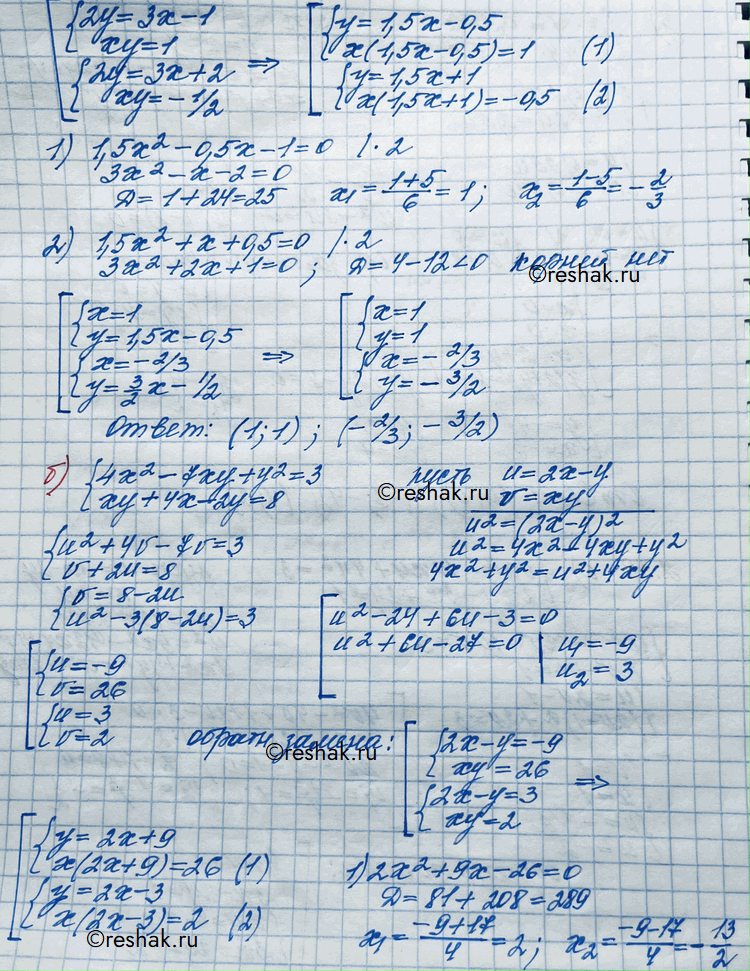 {2y=3x-1
xy=1
{2y=3x+2
xy=-1/2
⇒
{y=1,5x-0,5
x(1,5x-0,5)=1 (1)
{y=1,5x+1
x(1,5x+1)=-0,5 (2)
1) 1,5x²-0,5x-1=0 |·2
3x²-x-2=0
D=1+24=25 x₁=(1+5)/6=1; x₂=(1-5)/6=-2/3
2) 1,5x²+x+0,5=0 |·2
3x²+2x+1=0; D=4-12<0 корней нет
©reshak.ru
[{x=1
y=1,5x-0,5
{x=-2/3
y=3/2x-1/2
⇒
[{x=1
y=1
{x=-2/3
y=-3/2
Ответ: (1;1); (-2/3; -3/2)
б) {4x²-7xy+y²=3
xy+4x-2y=8
©reshak.ru
пусть u=2x-y
v=xy
u²=(2x-y)²
u²=4x²-4xy+y²
4x²+y²=u²+4xy
{u²+4v-7v=3
v+2u=8
{v=8-2u
u²-3(8-2u)=3
[u²-24+6u-3=0
u²+6u-27=0 | u₁=-9
u₂=3
[{u=-9
v=26
{u=3
v=2
обратн. замена:
©reshak.ru
[{2x-y=-9
xy=26
{2x-y=3
xy=2
⇒
[{y=2x+9
x(2x+9)=26 (1)
{y=2x-3
x(2x-3)=2 (2)
©reshak.ru
1) 2x²+9x-26=0
D=81+208=289
x₁=(-9+17)/4=2; x₂=(-9-17)/4=-13/2